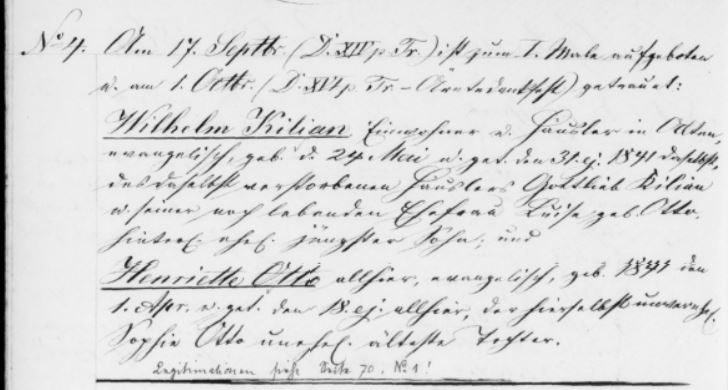 No 4. Am 17. Septbr. (D. XIV p. Tr.) ist zum I. Male aufgeboten
u. am 1. Octbr. (D. XVI p. Tr. – Aerntedankfest) getrauet:
Wilhelm Kilian, Einwohner u. Häusler in Otten,
evangelisch, geb. d. 24. Mai u. get. den 31. ej. 1841 daselbst,
des daselbst verstorbenen Häuslers Gottlieb Kilian
u. seiner noch lebenden Ehefrau Luise geb. Otto,
hinterl. ehel. jüngster Sohn; und
Henriette Otto allhier, evangelisch, geb. den
1. Apr. u. get. den 18. ej. allhier, der hierselbst unverehel.
Sophie Otto unehel. älteste Tochter.
Legitimationen siehe Seite 70. No 1!